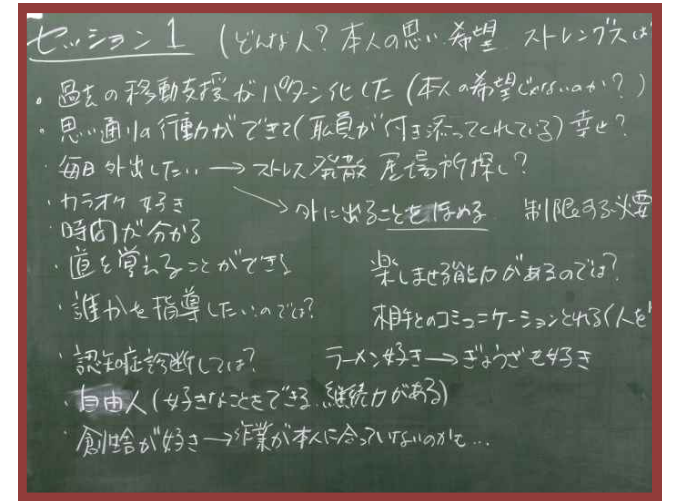 セッション1 (どんな人? 本人の思い 希望 ストレングスは
・過去の移動支援がパターン化した(本人の希望じゃないのか?)
・思い通りの行動ができて(職員が付き添ってくれている)幸せ?
・毎日外出したい → ストレス発散 居場所探し?
・カラオケ好き → 外に出ることをほめる 制限する必要
・時間が分かる
・道を覚えることができる 楽しませる能力があるのでは?
・誰かを指導したいのでは? 相手とのコミュニケーションとれる(人を
・認知症診断しては? ラーメン好き → ぎょうざも好き
・自由人(好きなことをできる 継続力がある)
・創性舎が好き → 作業が本人に合っていないのかも…